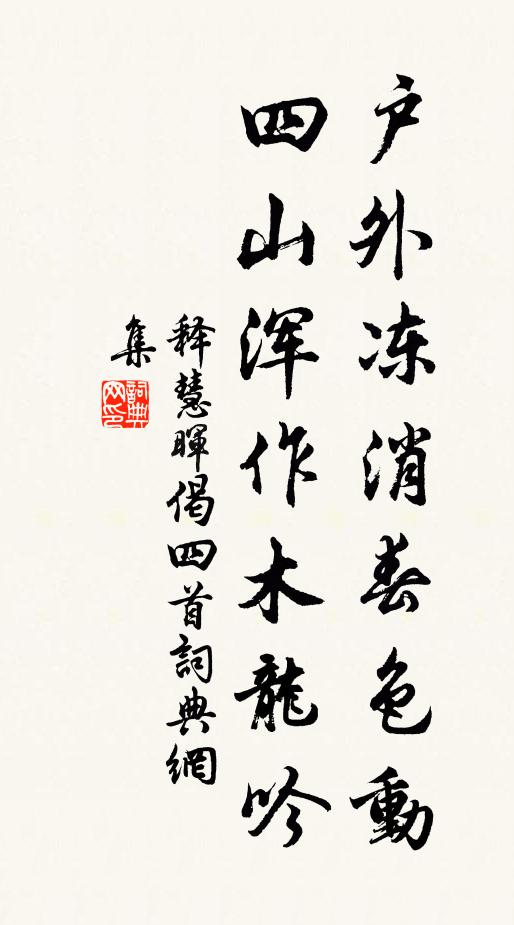 户外冻消春色動
四山浑作木龍吟
释慧暉偈四首詞典網
集
詞典網印